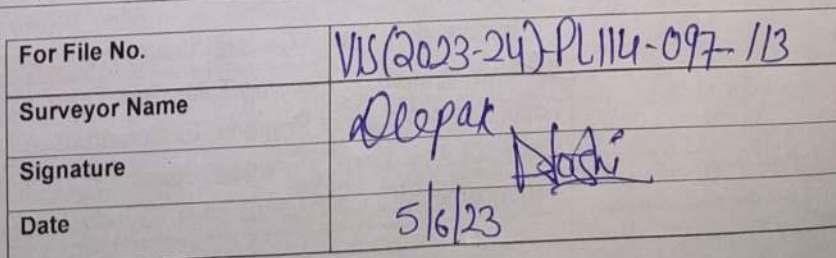 For File No. VIS(2023-24)-PL114-097-113
Surveyor Name Deepak
Signature
Date 5/6/23